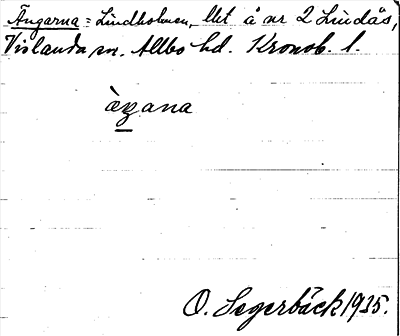 Ängarna = Lindholmen, lht å nr 2 Lindås,
Vislanda sn. Allbo hd. Kronob. l.
àgana
O. Segerbäck 1935.